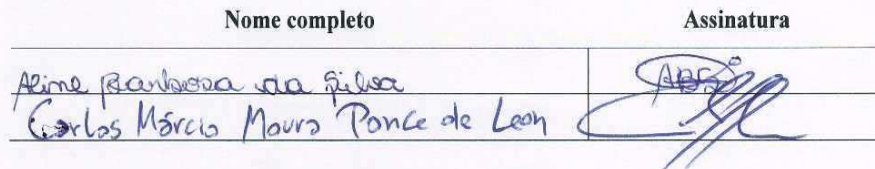 Nome completo Assinatura
Aline Barbosa da Silva ABS
Carlos Márcio Moura Ponce de Leon